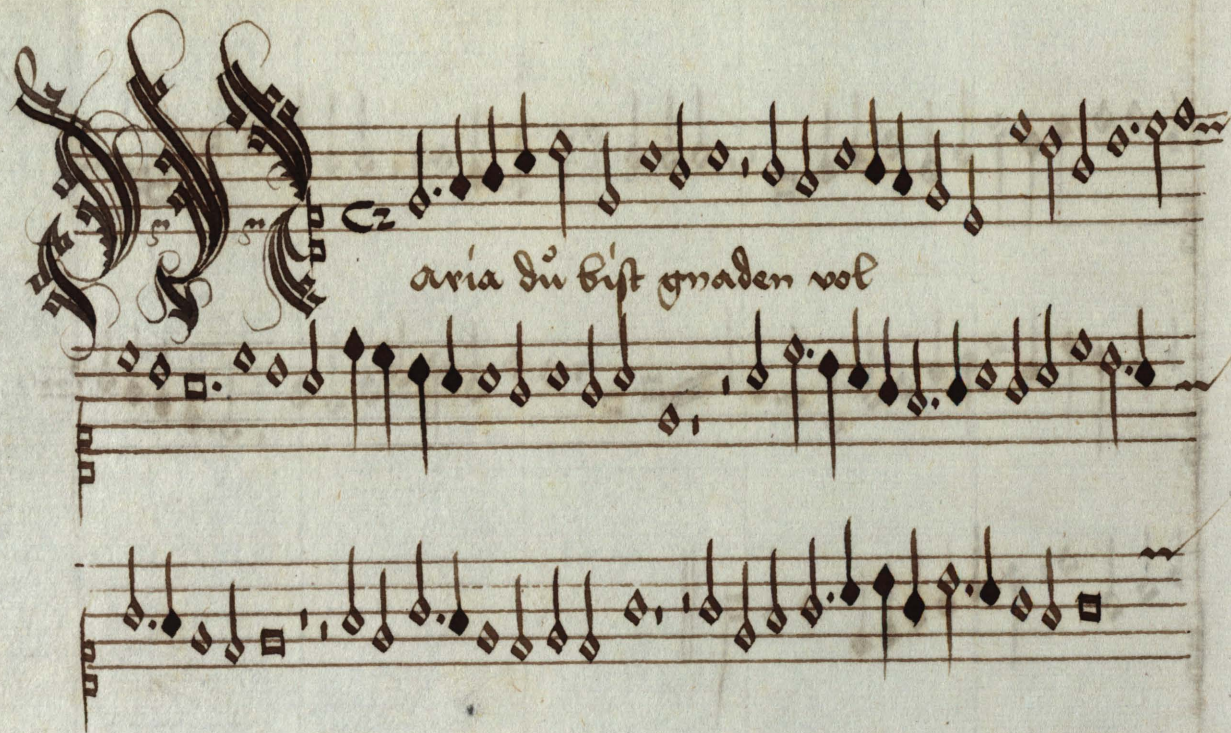 Maria du̍ bist gnaden vol